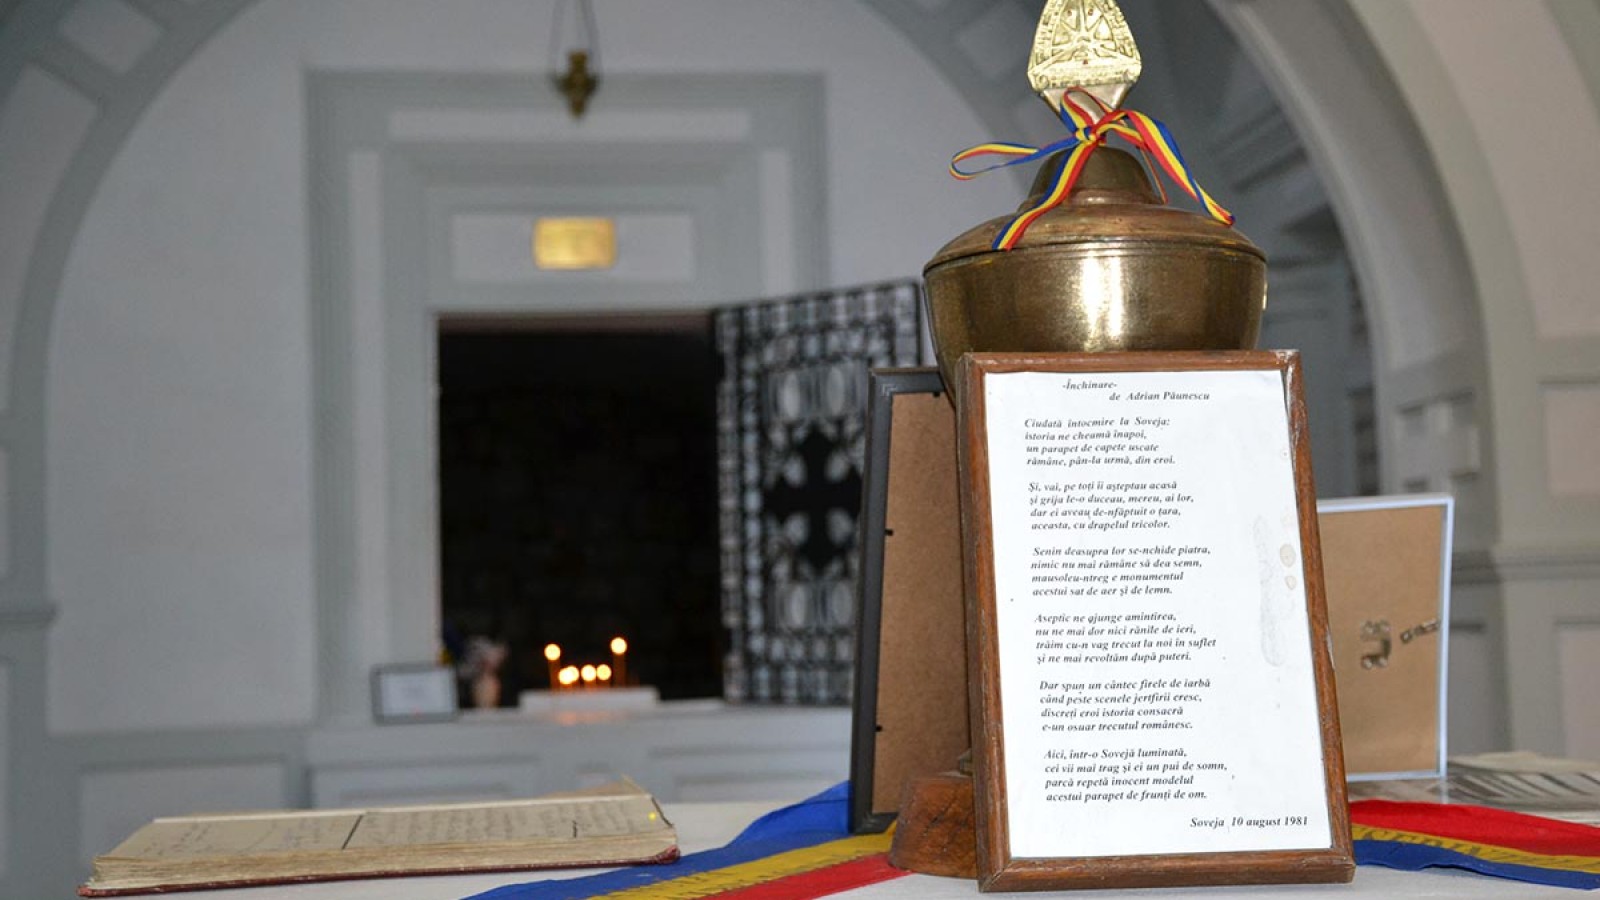 -Închinare-
de Adrian Păunescu
Ciudată întocmire la Soveja:
istoria ne cheamă înapoi,
un parapet de capete uscate
rămâne, pân-la urmă, din eroi.
Și, vai, pe toți îi așteptau acasă
și grija le-o duceau, mereu, ai lor,
dar ei aveau de-nfăptuit o țara,
aceasta, cu drapelul tricolor.
Senin deasupra lor se-nchide piatra,
nimic nu mai rămâne să dea semn,
mausoleu-ntreg e monumentul
acestui sat de aer și de lemn.
Aseptic ne ajunge amintirea,
nu ne mai dor nici rănile de ieri,
trăim cu-n vag trecut la noi în suflet
și ne mai revoltăm după puteri.
Dar spun un cântec firele de iarbă
când peste scenele jertfirii eresc,
discreți eroi istoria consacră
e-un osuar trecutul românesc.
Aici, într-o Sovejă luminată,
cei vii mai trag și ei un pui de somn,
parcă repetă inocent modelul
acestui parapet de frunți de om.
Soveja 10 august 1981